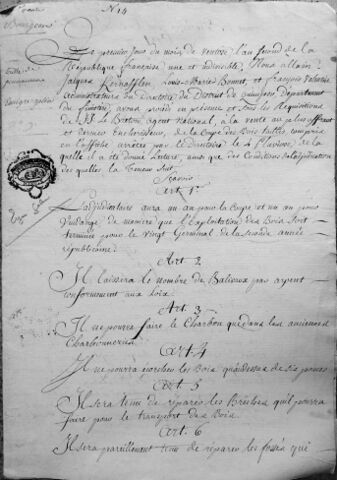 N.º 14
Le premier jour du mois de ventose l'an second de la
République françoise une et indivisible, Nous allain
Jacques Louis Marie Bonnet, et françois
administrateurs du directoire du District de département
du finistère, avons procédé en présence et sous les Réquisitions
de Le Breton agent National, à la vente au plus offrant
et dernier Enchérisseur, de la Coupe des Bois taillis, compris
en l'affiche arrêtée par le directoire le 4 Pluviose, de la
quelle il a été donné Lecture, ainsi que des Conditions de l'adjudication
des quelles la teneur suit.
Sçavoir
Art. 1er
L'adjudicataire aura un an pour la Coupe et un an pour
Vuidange de manière que l'Exploitation des Bois soit
terminée pour le vingt Germinal de la année
républicaine.
Art 2
Il laissera le nombre de Baliveux par arpent
conformément aux loix.
Art. 3
Il ne pourra faire le Charbon que dans les anciennes
Charbonneries
Art. 4
Il ne pourra écorcher les Bois qu'au dessus de six pouces
Art. 5
Il sera tenu de réparer les Brèches qu'il pourra
faire pour le transport des Bois.
Art. 6
Il sera pareillement tenu de réparer les fossés qui